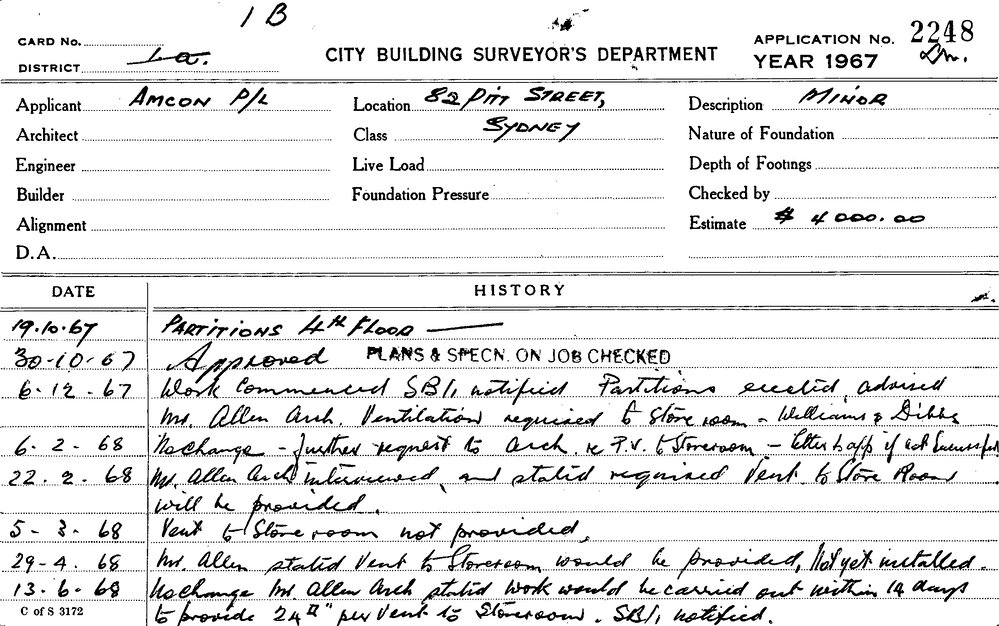 1 B
CARD No.
DISTRICT La.
CITY BUILDING SURVEYOR'S DEPARTMENT
APPLICATION No. 2248
YEAR 1967
Applicant AMCON P/L
Location 82 PITT STREET,
Description MINOR
Architect
Class SYDNEY
Nature of Foundation
Engineer
Live Load
Depth of Footings
Builder
Foundation Pressure
Checked by
Alignment
Estimate $ 4000.00
D.A.
DATE HISTORY
19.10.67 PARTITIONS 4TH FLOOR
30-10-67 Approved PLANS & SPECN. ON JOB CHECKED
6-12-67 Work Commenced SB/1 notified Partitions erected, advised
Mr. Allen Arch. Ventilation required to Store room - Williams & Dibbs
6-2-68 No change - further request to arch. re P.V. to Storeroom - letter to app if not successful
22.2.68 Mr. Allen Arch interviewed, and stated required Vent. to Store Room
will be provided.
5-3-68 Vent to Store room not provided,
29-4.68 Mr. Allen stated Vent to Storeroom would be provided, Not yet installed.
13.6.68 No change Mr. Allen Arch stated work would be carried out within 14 days
C of S 3172
to provide 24 □" per Vent to Storeroom. SB/1 notified.